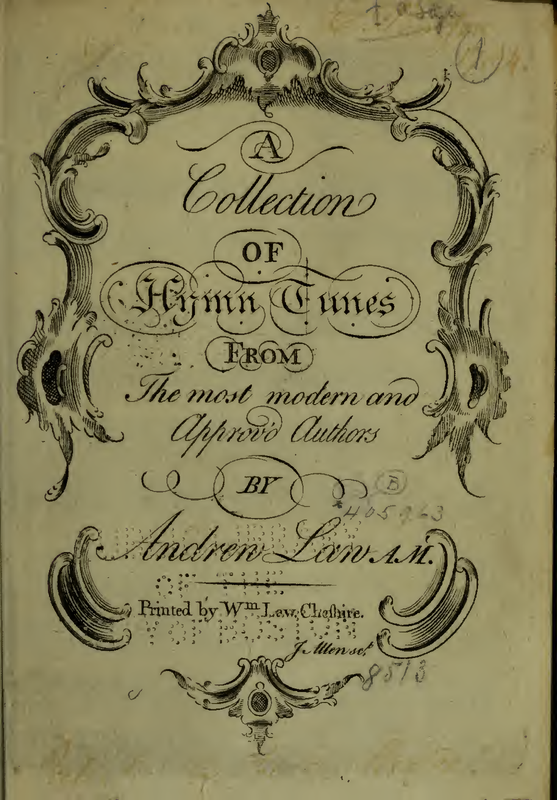 1
A
Collection
OF
Hymn Tunes
FROM
The most modern and
Approv'd Authors
BY
B
*405.963
Andrew Law A.M.
Printed by Wm. Law, Cheshire.
J Allen sct.
8513